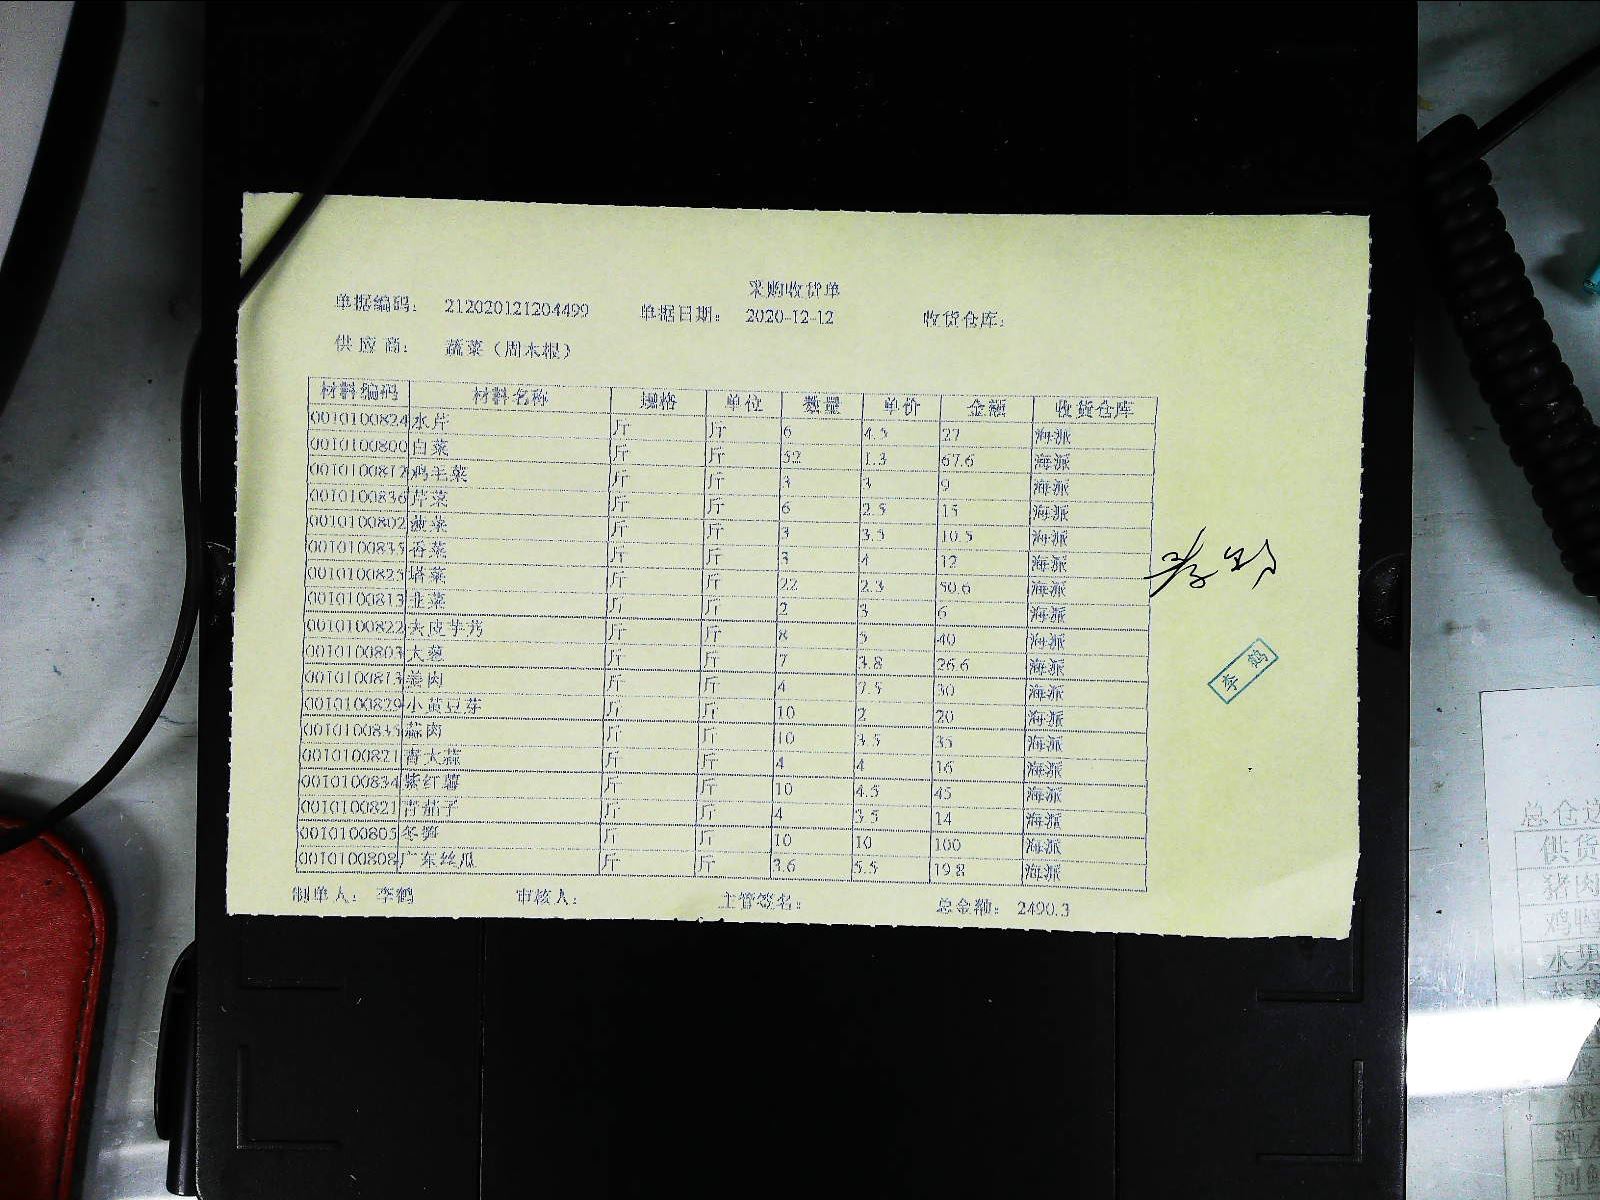 采购收货单
单据编码： 212020121204499 单据日期： 2020-12-12 收货仓库：
供应商： 蔬菜（周木根）
材料编码 材料名称 规格 单位 数量 单价 金额 收货仓库
0010100824 水芹 斤 斤 6 4.5 27 海派
0010100800 白菜 斤 斤 52 1.3 67.6 海派
0010100812 鸡毛菜 斤 斤 3 3 9 海派
0010100836 芹菜 斤 斤 6 2.5 15 海派
0010100802 菠菜 斤 斤 3 3.5 10.5 海派
0010100835 香菜 斤 斤 3 4 12 海派
0010100825 塔菜 斤 斤 22 2.3 50.6 海派
0010100813 韭菜 斤 斤 2 3 6 海派
0010100822 去皮芋艿 斤 斤 8 5 40 海派
0010100803 大葱 斤 斤 7 3.8 26.6 海派
0010100813 姜肉 斤 斤 4 7.5 30 海派
0010100829 小黄豆芽 斤 斤 10 2 20 海派
0010100835 蒜肉 斤 斤 10 3.5 35 海派
0010100821 青大蒜 斤 斤 4 4 16 海派
0010100834 紫红薯 斤 斤 10 4.5 45 海派
0010100821 青茄子 斤 斤 4 3.5 14 海派
0010100805 冬笋 斤 斤 10 10 100 海派
0010100808 广东丝瓜 斤 斤 3.6 5.5 19.8 海派
制单人： 李鹤 审核人： 主管签名： 总金额： 2490.3
李鹤
总仓
供货
猪肉
鸡鸭
水果